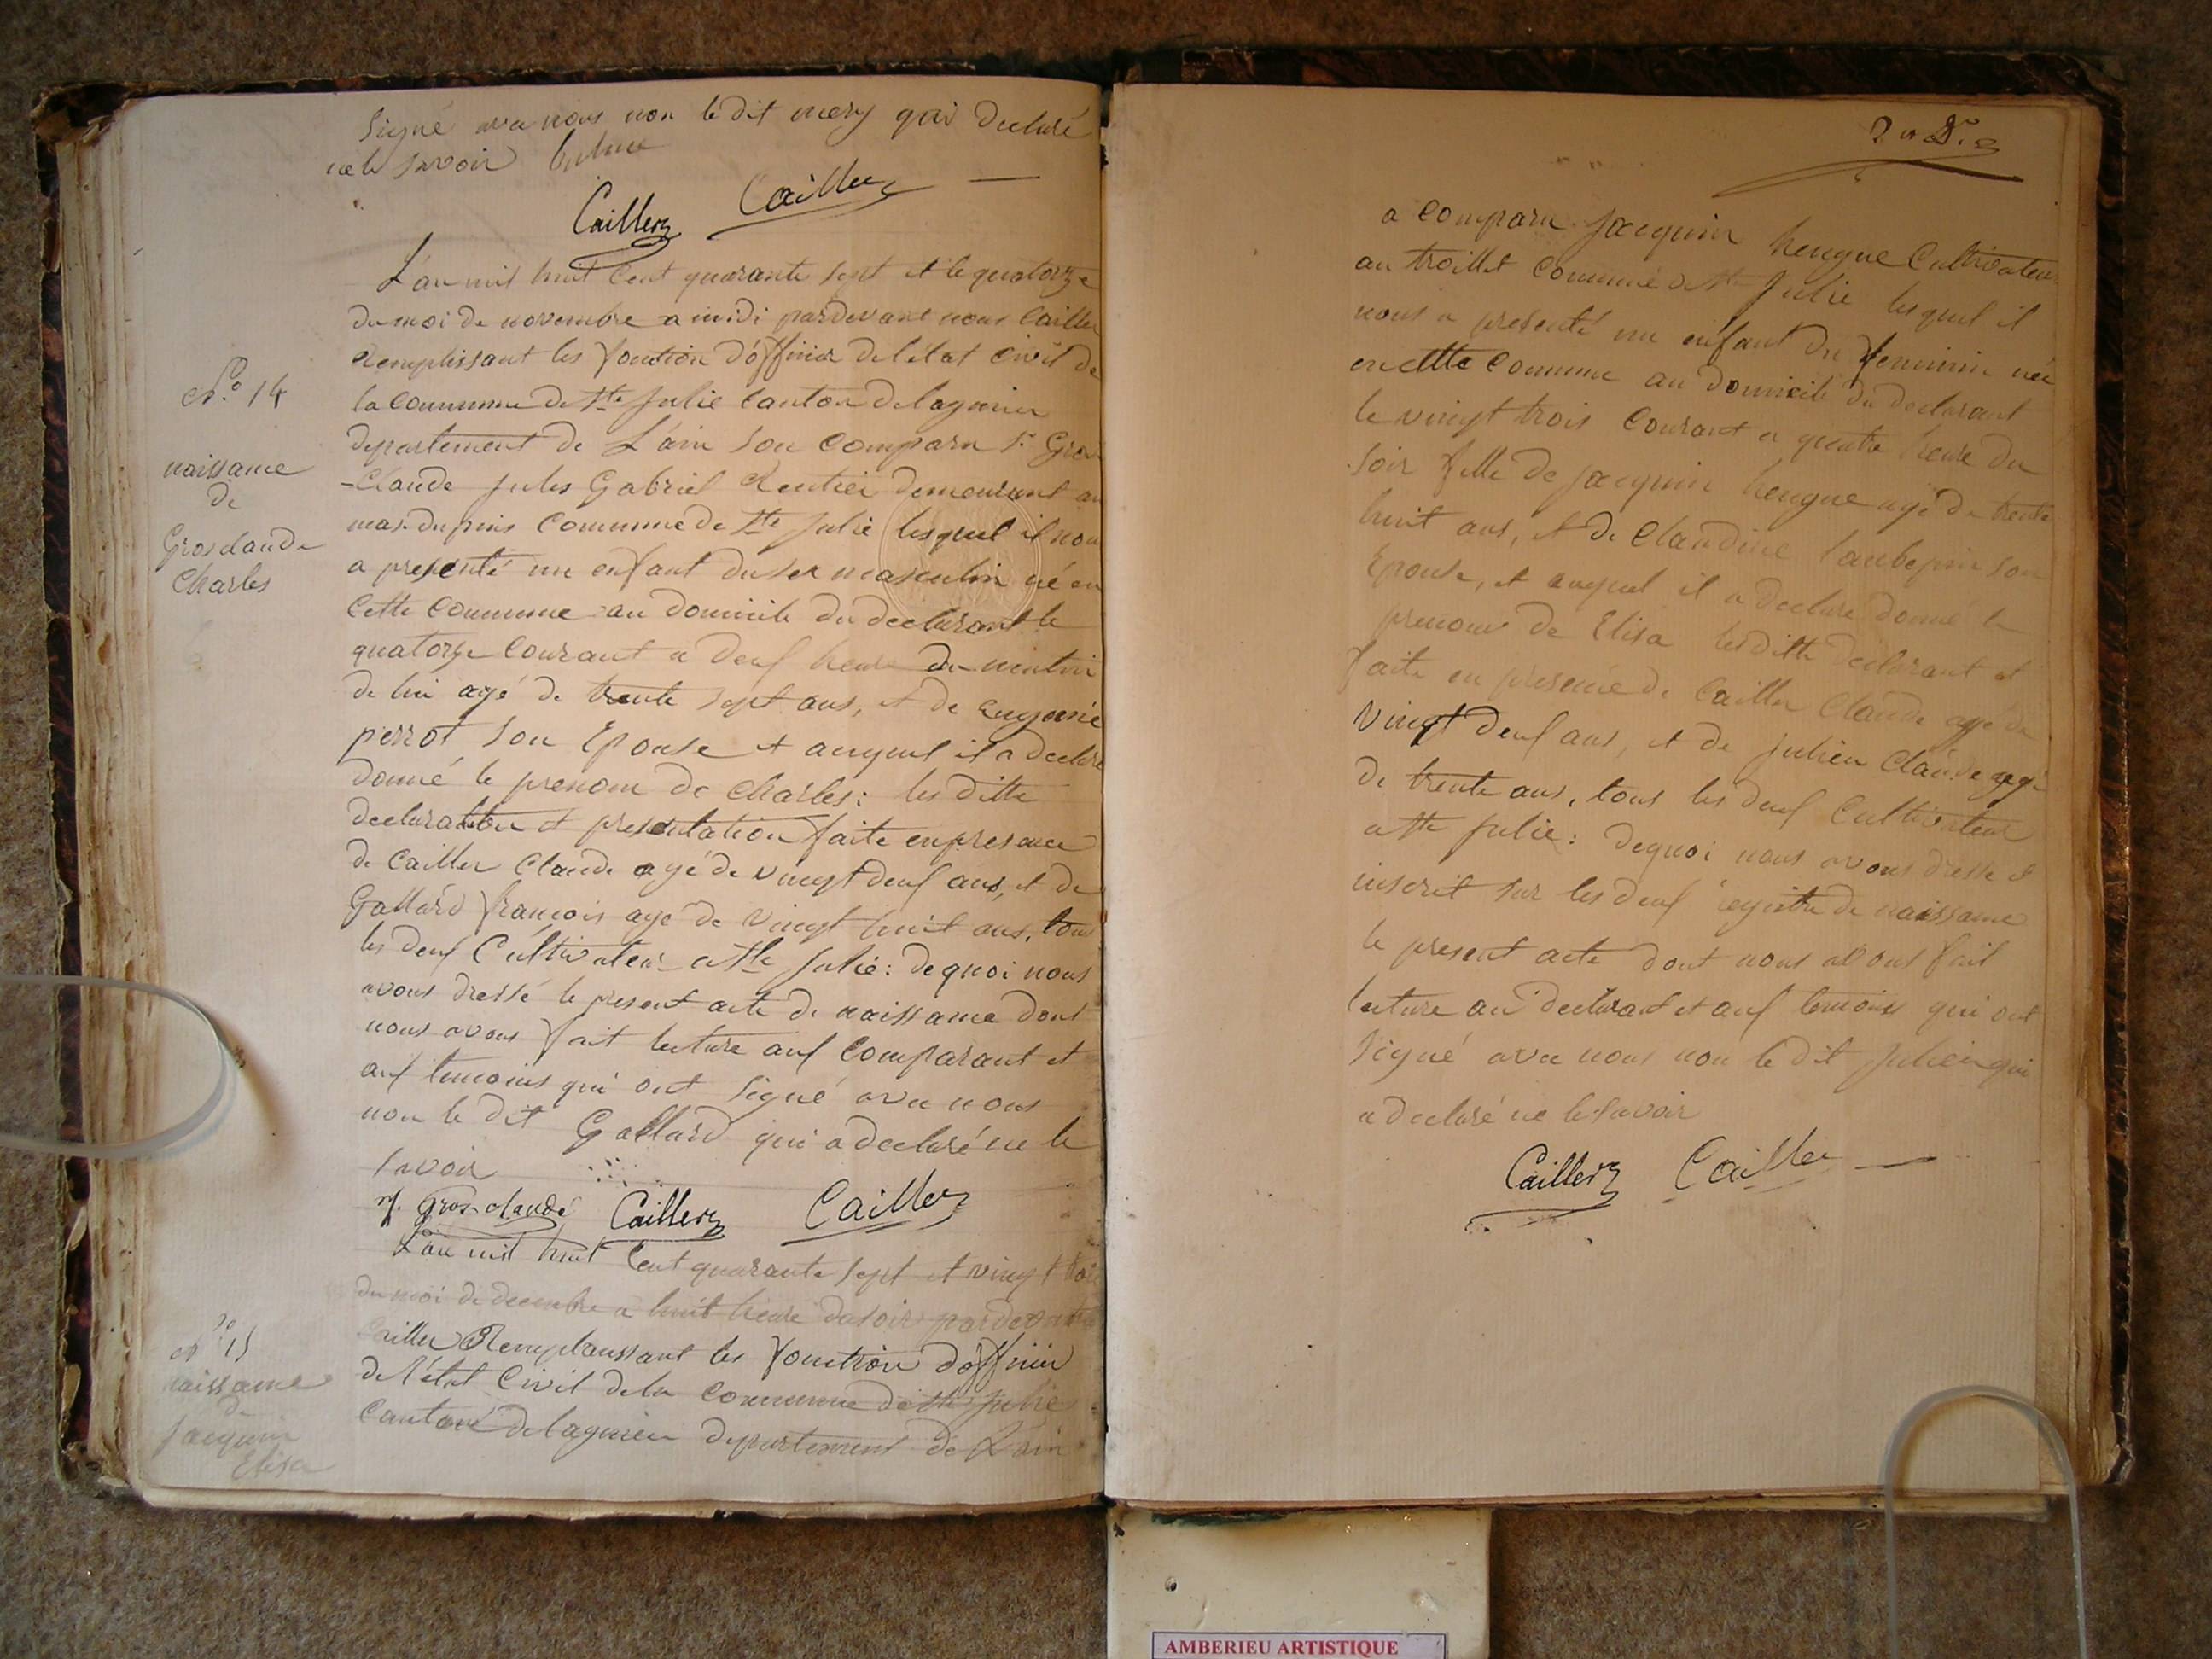 Signé avec nous non le dit mery qui declaré
ne le savoir lecture
Cailler Cailler
L'an mil huit Cent quarante sept et le quatorze
du moi de novembre a midi pardevant nous Cailler
Remplissant les fonction d'officier de l'état civil de
N.o 14
la commune de Ste Julie Canton de lagnieu
departement de L'ain son comparu Sr Gros
naissance
de
Grosclaude
Charles
-Claude Jules Gabriel Rentier demeurant au
mas dupuis Commune de Ste Julie lesquel il nou
a presenté un enfant du sex masculin né en
Cette Commune au domicile du declarant le
quatorze Courant a deux heure du matin
de lui agé de trente sept ans, et de Eugenie
perrot son Epouse et auquel il a declaré
donné le prenom de Charles: les ditte
declaration et presentation faite en presence
de Cailler Claude agé de vingt deux ans, et de
Gallard françois agé de vingt huit ans, tous
les deux Cultivateur a Ste Julie: de quoi nous
avons dressé le present acte de naissance dont
nous avons fait lecture aux Comparant et
aux temoins qui ont signé avec nous
non le dit Gallard qui a declaré ne le
savoir
Grosclaude Cailler Cailler
L'an mil huit Cent quarante sept et vingt trois
du moi de decembre a huit heure du soir pardevant
Cailler Remplaussant les fonction d'officier
de l'état Civil de la commune de Ste Julie
Canton de lagnieu departement de L'ain
N.o 15
naissance
de
Jacquin
Elisa
a comparu Jacquin hengue Cultivateur
au troillet Commune de Ste Julie lesquel il
nous a presenté un enfant du feminin née
en cette Commune au domicile du declarant
le vingt trois Courant a quatre heure du
soir fille de Jacquin hengue agé de trente
huit ans, et de Claudine laubepin son
Epouse, et auquel il a declaré donné le
prenom de Elisa les ditte declarant et
faite en presence de Cailler Claude agé de
vingt deux ans, et de Julien Claude agé
de trente ans, tous les deux Cultivateur
a Ste Julie: de quoi nous avons dressé et
inscrit sur les deux registre de naissance
le present acte dont nous avons fait
lecture au declarant et aux temoins qui ont
Signé avec nous non le dit Julien qui
a declaré ne le savoir
Cailler Cailler
AMBERIEU ARTISTIQUE